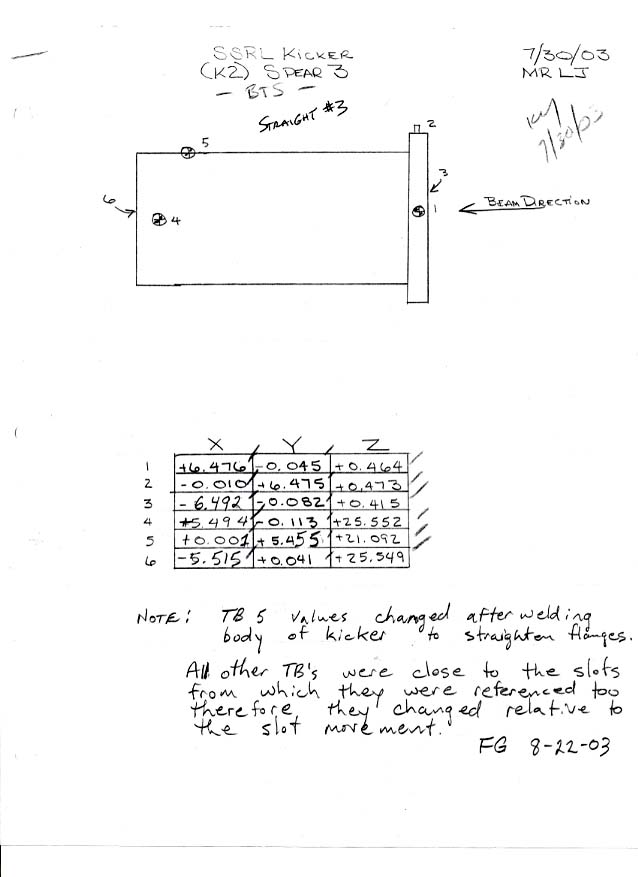 SSRL KICKER
(K2) SPEAR 3
- BTS -
STRAIGHT #3
7/30/03
MR LJ
7/30/03
2
5
3
6
4
1
BEAM DIRECTION
X Y Z
1 +6.476 -0.045 +0.464
2 -0.010 +6.475 +0.473
3 -6.492 -0.082 +0.415
4 +5.494 -0.113 +25.552
5 +0.001 +5.455 +21.092
6 -5.515 +0.041 +25.549
NOTE: TB 5 values changed after welding
body of kicker to straighten flanges.
All other TB's were close to the slots
from which they were referenced too
therefore they changed relative to
the slot movement.
FG 8-22-03